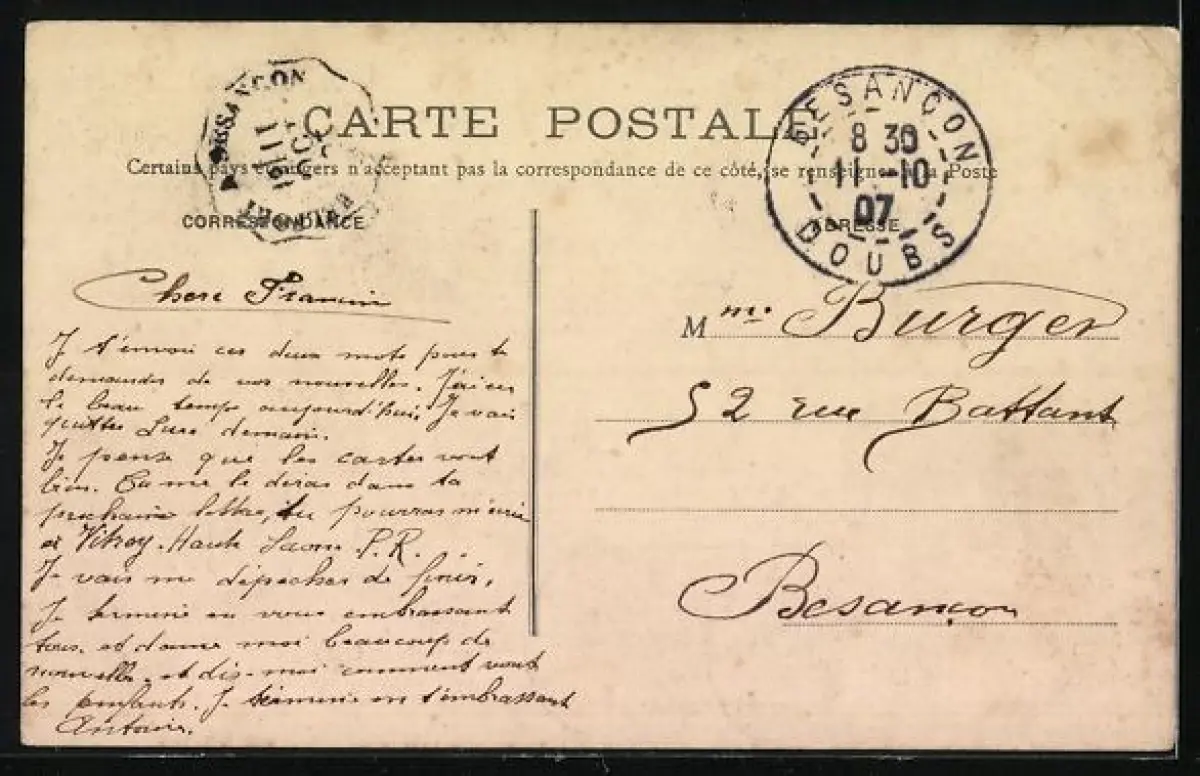 CARTE POSTALE
Certains pays étrangers n'acceptant pas la correspondance de ce côté, se renseigner à la Poste
CORRESPONDANCE
ADRESSE
BESANÇON
11 OCT
BESANÇON
8 30
11 -10
07
DOUBS
Chere Francine
Je t'envoi ces deux mots pour te
demander de vos nouvelles.
le beau temps aujourd'hui. Je vais
quitter Lure demain.
Je pense que les cartes vont
bien. Tu me le diras dans ta
prochaine lettre, tu pourras m'écrire
a Vitrey. Haute Saone P.R.
Je vais me dépecher de finir,
Je termine en vous embrassant
tous. et donne moi beaucoup de
nouvelle. et dis-moi comment vont
les enfants. Je termine en t'embrassant
Antoine.
Mme. Burger
52 rue Battant
Besançon